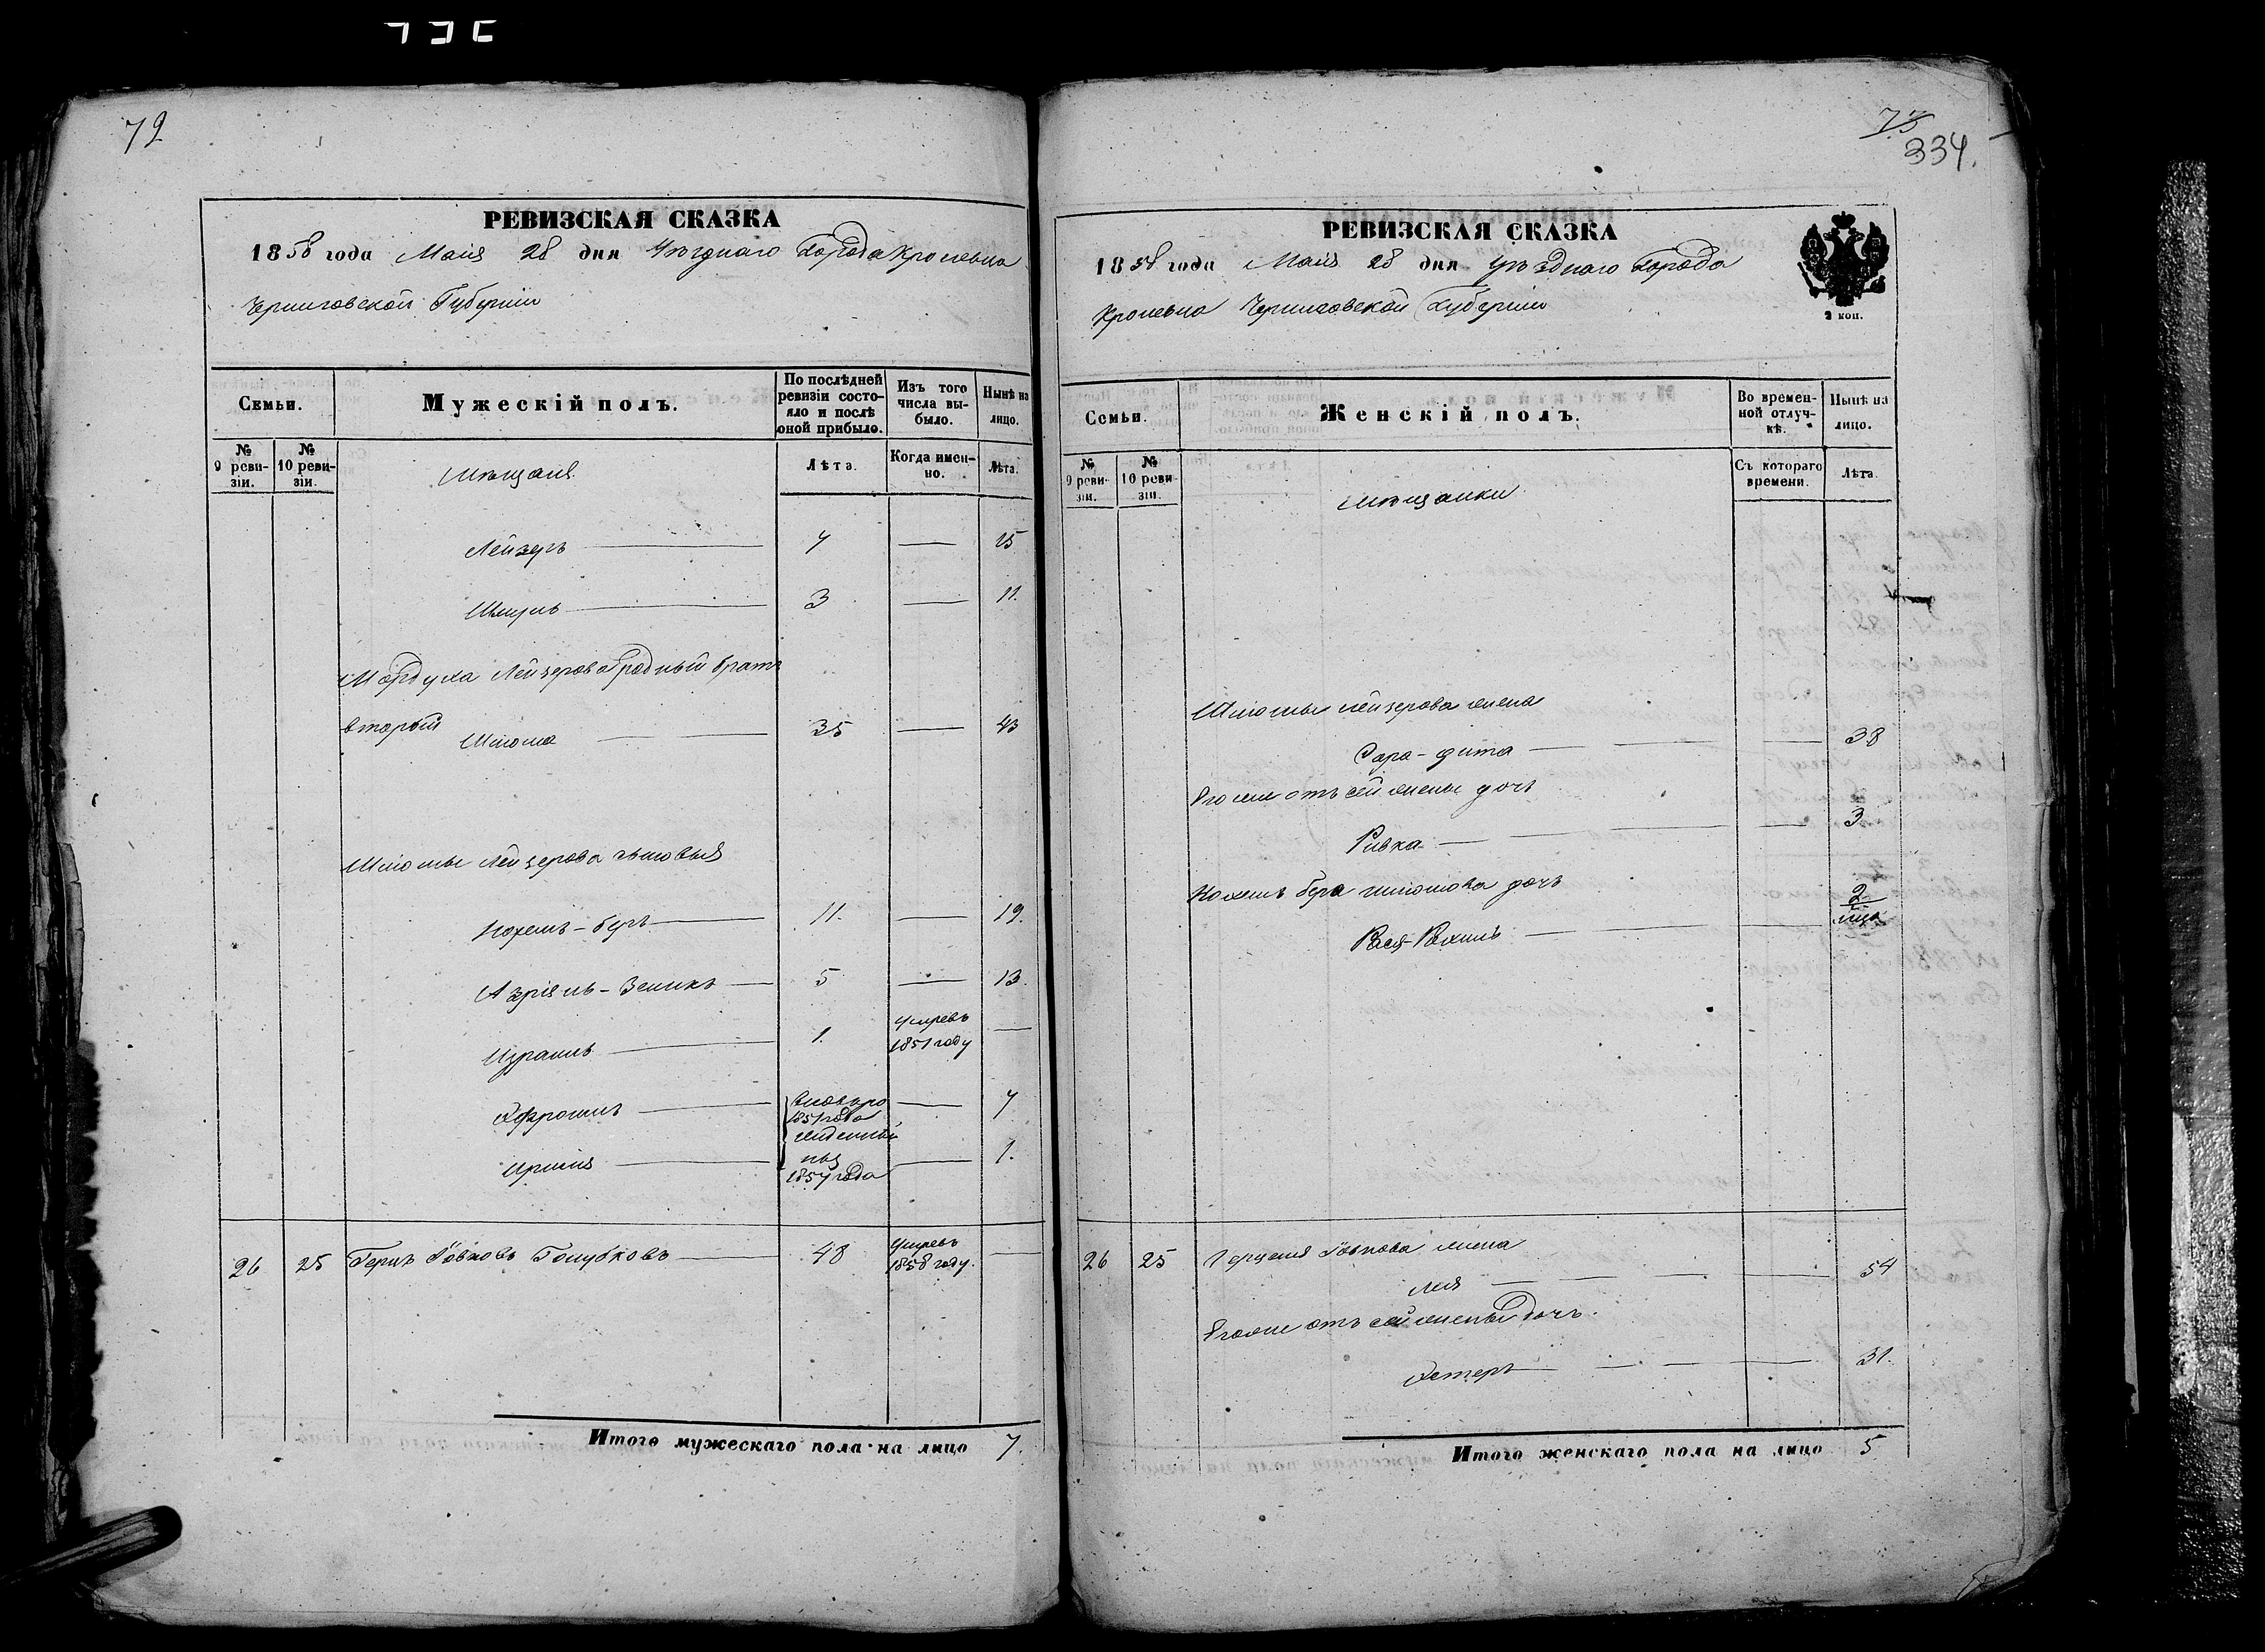 72
РЕВИЗСКАЯ СКАЗКА
1858 года Маія 28 дня Уѣзднаго Города Кролевца
Черниговской Губерніи
Семьи.
Мужескій полъ.
По послѣдней ревизіи состояло и послѣ оной прибыло.
Изъ того числа выбыло.
Нынѣ на лицо.
№ 9 ревизіи.
№ 10 ревизіи.
Мѣщане
Лѣта.
Когда именно.
Лѣта.
Лейзеръ — 7 — 15
Шмуль — 3 — 11.
Мордуха Лейзерова родный братъ
вторый Шлома — 35 — 43
Шломы Лейзерова сыновья
Нохемъ-беръ — 11. — 19.
Азріель-Зеликъ — 5 — 13.
Израиль — 1. умре въ 1851 году —
Эфроимъ — 1851 года — 7
— 1857 года — 1.
26 25 Герцъ Іовновъ Голубковъ — 48 умре въ 1858 году. —
Итого мужескаго пола на лицо 7.
73
334.
РЕВИЗСКАЯ СКАЗКА
1858 года Маія 28 дня Уѣзднаго Города
Кролевца Черниговской Губерніи
2 коп.
Семьи.
Женскій полъ.
Во временной отлучкѣ.
Нынѣ на лицо.
№ 9 ревизіи.
№ 10 ревизіи.
Мѣщанки
Съ котораго времени.
Лѣта.
Шломы Лейзерова жена
Сара-дита — — — 38
Его же отъ сей жены дочь
Ривка — — — 3
Нохемъ бера Шломова дочь
Рася-Рахиль — — — 2
26 25 Іовнова жена
Лея — — — 54
Его же отъ сей жены дочь.
Эстеръ — — — 31.
Итого женскаго пола на лицо 5